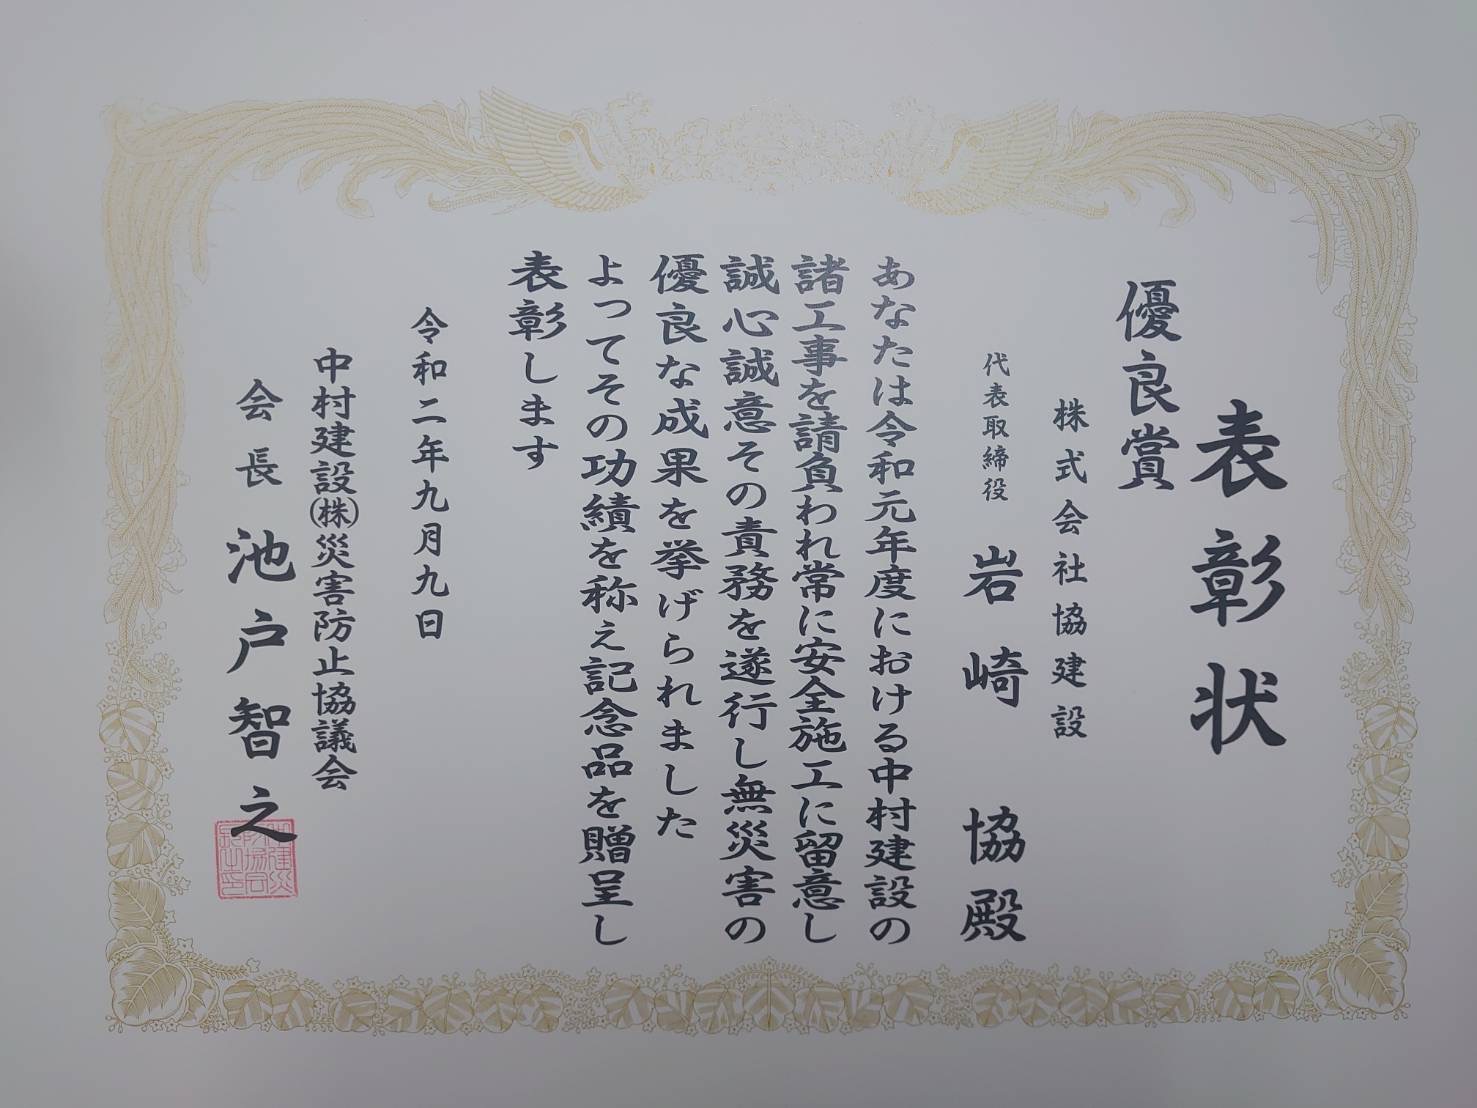 表彰状
優良賞
株式会社協建設
代表取締役 岩崎 協殿
あなたは令和元年度における中村建設の
諸工事を請負われ常に安全施工に留意し
誠心誠意その責務を遂行し無災害の
優良な成果を挙げられました
よってその功績を称え記念品を贈呈し
表彰します
令和二年九月九日
中村建設㈱災害防止協議会
会長 池戸智之